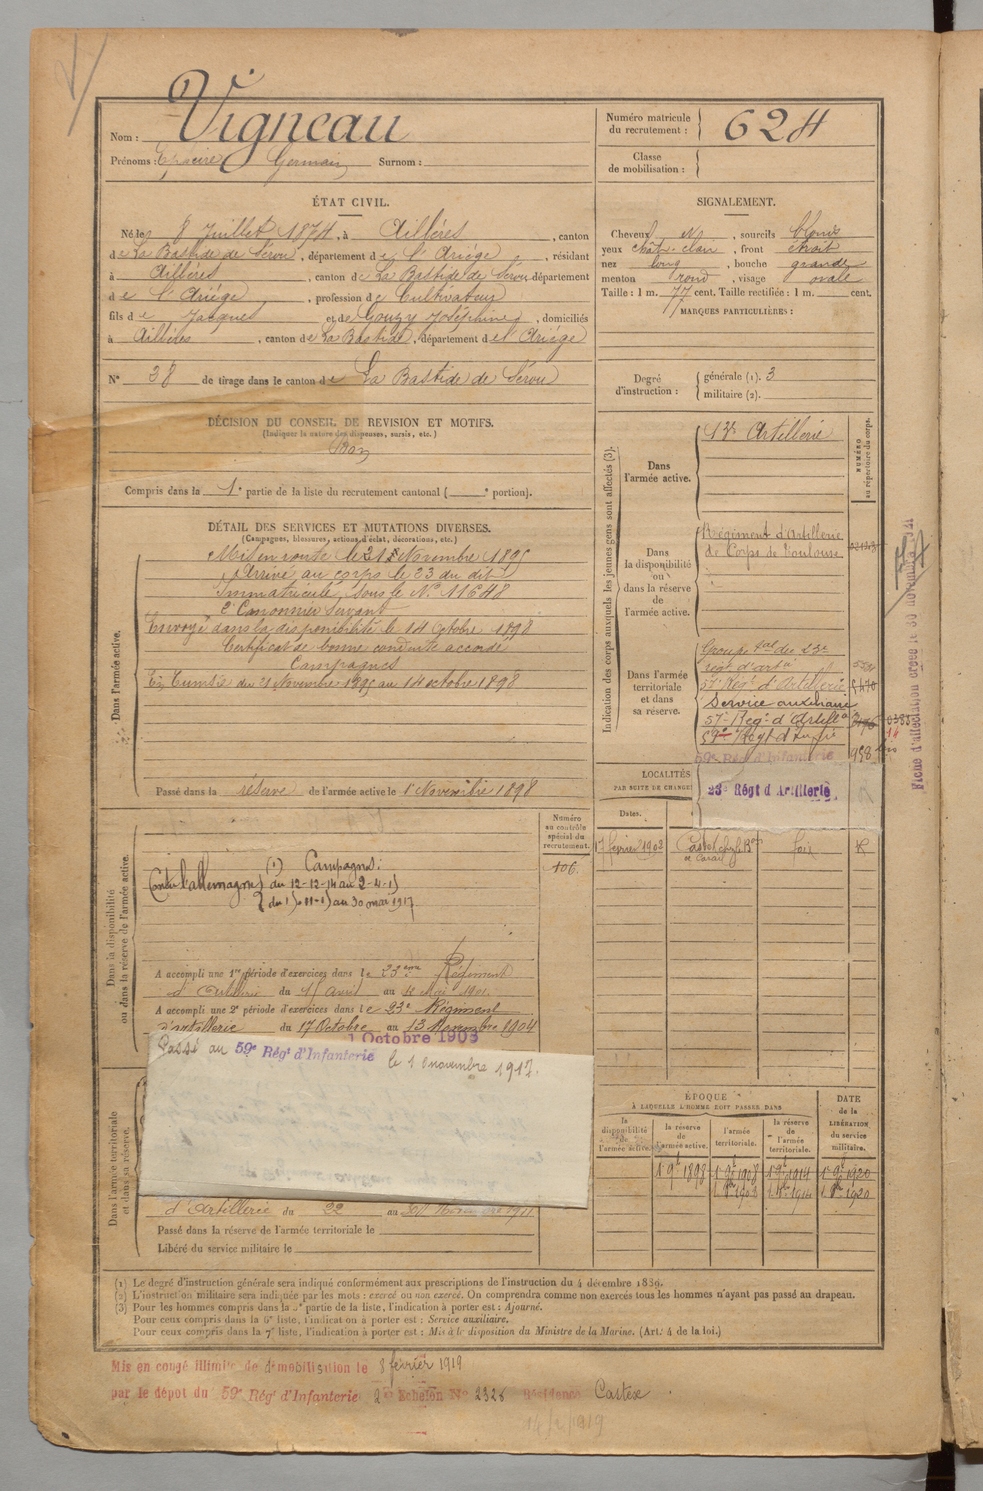 Nom : Vigneau
Prénoms : Germain Surnom :
Numéro matricule du recrutement : 624
Classe de mobilisation :
ÉTAT CIVIL.
Né le 8 Juillet 1874, à Aillères, canton
de La Bastide de Sérou, département de l'Ariége, résidant
à Aillères, canton de La Bastide de Sérou, département
de l'Ariége, profession de Cultivateur
fils de Jacques et de Gouzy Joséphine, domiciliés
à Aillères, canton de La Bastide, département de l'Ariége
N° 38 de tirage dans le canton de La Bastide de Sérou
SIGNALEMENT.
Cheveux, sourcils blonds
yeux chât. clair, front étroit
nez long, bouche grande
menton rond, visage ovale
Taille : 1 m. 77 cent. Taille rectifiée : 1 m. cent.
MARQUES PARTICULIÈRES :
Degré d'instruction : générale (1). 3
militaire (2).
DÉCISION DU CONSEIL DE REVISION ET MOTIFS.
(Indiquer la nature des dispenses, sursis, etc.)
Bon
Compris dans la 1e partie de la liste du recrutement cantonal ( e portion).
DÉTAIL DES SERVICES ET MUTATIONS DIVERSES.
(Campagnes, blessures, actions d'éclat, décorations, etc.)
Dans l'armée active.
Mis en route le 21 Novembre 1895
Arrivé au corps le 23 du dit
Immatriculé sous le N° 11648
2e Canonnier Servant
Envoyé dans la disponibilité le 14 Octobre 1898
Certificat de bonne conduite accordé
Campagnes
En Tunisie du 21 Novembre 1895 au 14 octobre 1898
Passé dans la réserve de l'armée active le 1 Novembre 1898
Indication des corps auxquels les jeunes gens sont affectés (3).
NUMÉRO au répertoire du corps.
Dans l'armée active.
13e Artillerie
Dans la disponibilité ou dans la réserve de l'armée active.
Régiment d'Artillerie
de Corps de Toulouse
Dans l'armée territoriale et dans sa réserve.
Groupe tal du 23e
reg. d'artie
57e Rég. d'Artillerie 5470
Service auxiliaire
57e Rég. d'Artille
59e Régt d'Infie
59e Rég. d'Infanterie 958 bis
23e Régt d'Artillerie
Fiche d'affectation créée le 30 novembre
LOCALITÉS
PAR SUITE DE CHANGE
Dates.
17 février 1902 Foix R
Dans la disponibilité ou dans la réserve de l'armée active.
Numéro au contrôle spécial du recrutement.
106
(1) Campagnes :
Contre l'allemagne du 12-12-14 au 2-4-15
du 15-11-15 au 30 mai 1917
A accompli une 1re période d'exercices dans le 23ème Régiment
d'Artillerie du 15 Avril au 12 Mai 1901.
A accompli une 2e période d'exercices dans le 23e Régiment
d'artillerie du 17 Octobre au 13 Novembre 1904
1 Octobre 1908
Passé au 59e Régt d'Infanterie le 1 novembre 1917.
Dans l'armée territoriale et dans sa réserve.
d'Artillerie du 22 au 30 Novembre 1911
Passé dans la réserve de l'armée territoriale le
Libéré du service militaire le
ÉPOQUE
À LAQUELLE L'HOMME DOIT PASSER DANS
la disponibilité de l'armée active.
la réserve de l'armée active.
l'armée territoriale.
la réserve de l'armée territoriale.
DATE de la LIBÉRATION du service militaire.
1 9bre 1898 1 9bre 1908 1 9bre 1914 1 9bre 1920
1 8bre 1908 1 8bre 1914 1 8bre 1920
(1) Le degré d'instruction générale sera indiqué conformément aux prescriptions de l'instruction du 4 décembre 1889.
(2) L'instruction militaire sera indiquée par les mots : exercé ou non exercé. On comprendra comme non exercés tous les hommes n'ayant pas passé au drapeau.
(3) Pour les hommes compris dans la 5e partie de la liste, l'indication à porter est : Ajourné.
Pour ceux compris dans la 6e liste, l'indication à porter est : Service auxiliaire.
Pour ceux compris dans la 7e liste, l'indication à porter est : Mis à la disposition du Ministre de la Marine. (Art. 4 de la loi.)
Mis en congé illimité de démobilisation le 8 février 1919
par le dépôt du 59e Régt d'Infanterie 2e Echelon N° 2328 Résidence Castéx
14/2/1919